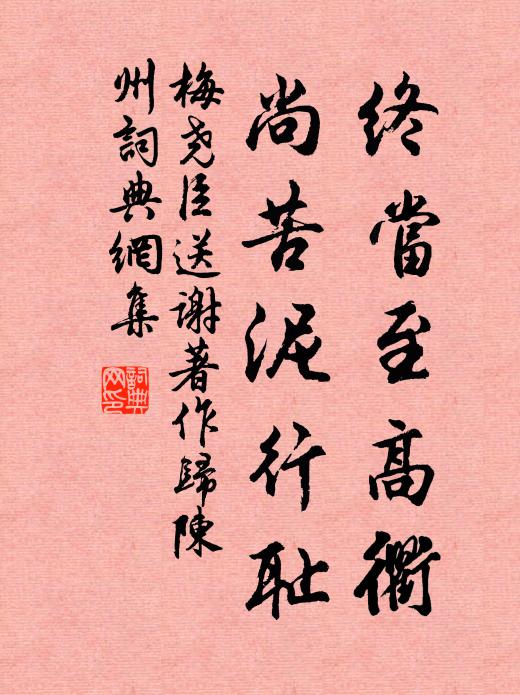 終當至高衢
尚苦泥行耻
梅尧臣送謝著作歸陳
州詞典網集
詞典網印